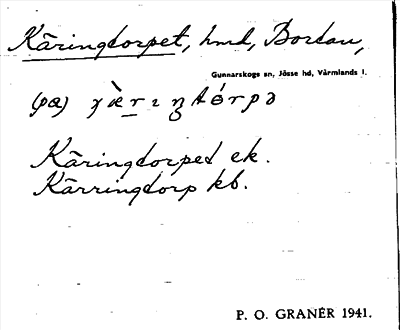 Käringtorpet, hmd, Bortan,
Gunnarskogs sn, Jösse hd, Värmlands l.
(pæ)
Käringtorpet ek.
Kärringtorp kb.
P. O. GRANÉR 1941.